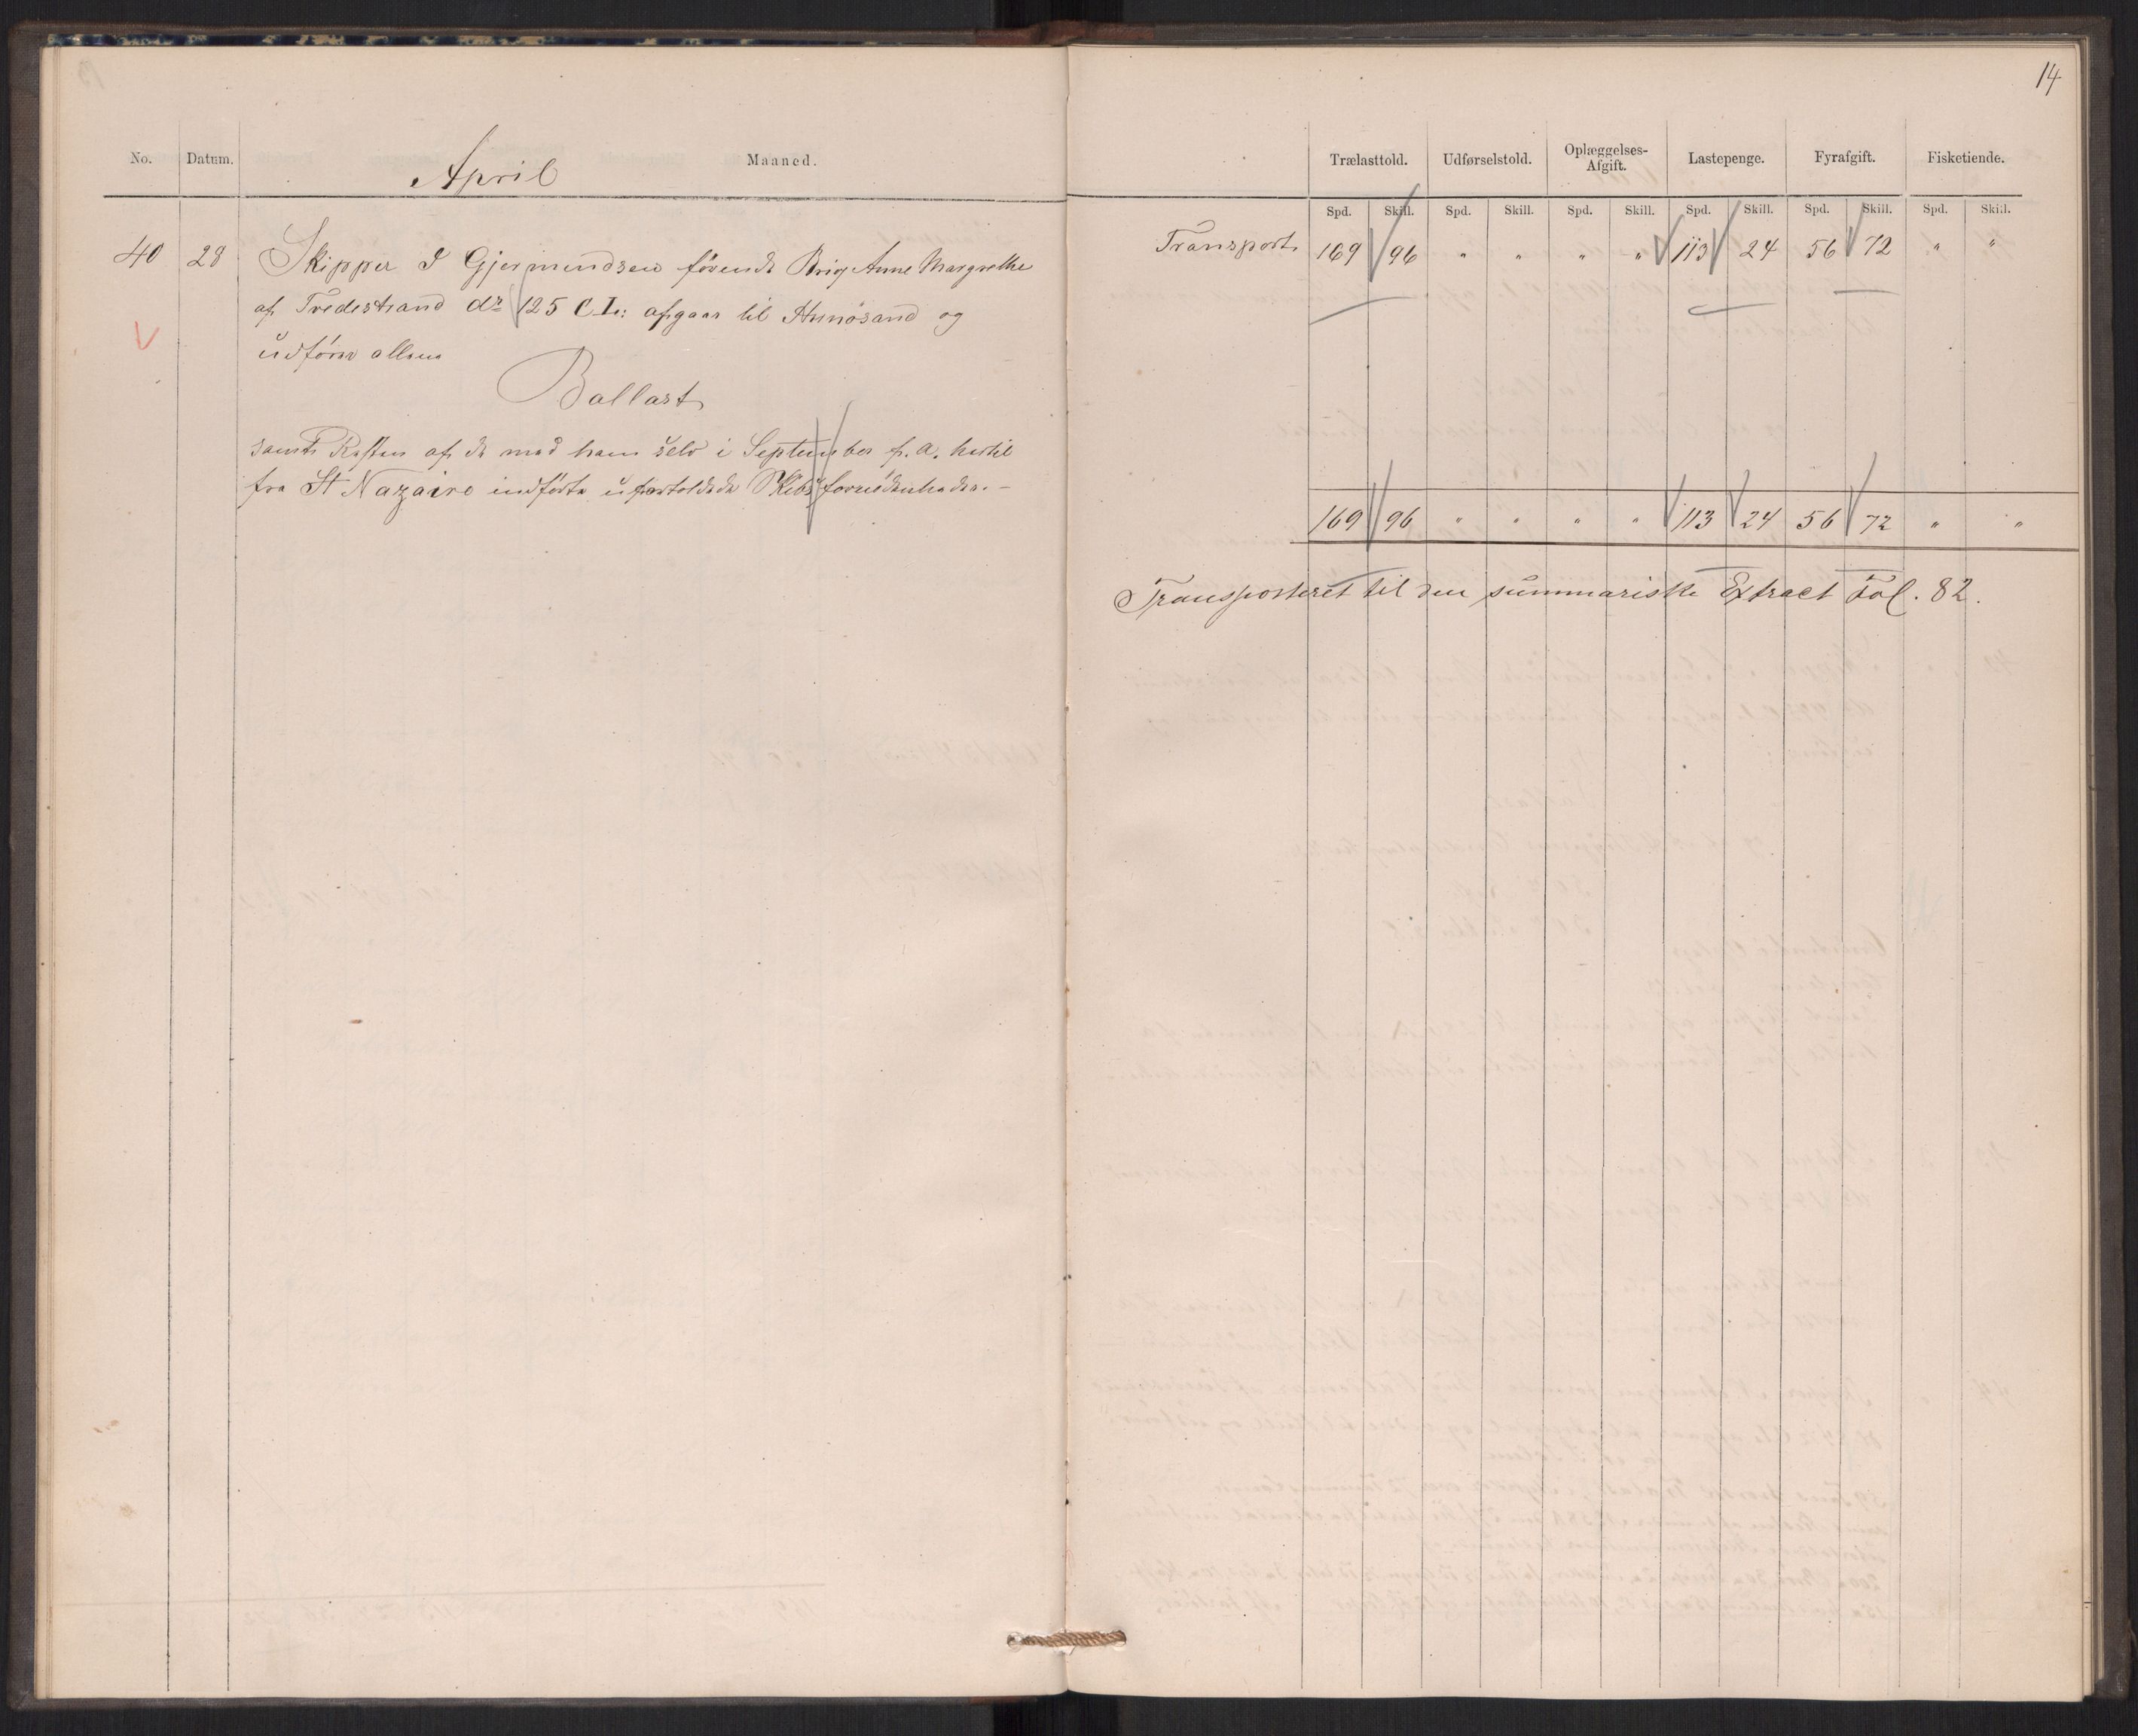 14
No. Datum. April Maaned.
Trælasttold. Udførselstold. Oplæggelses-Afgift. Lastepenge. Fyrafgift. Fisketiende.
Spd. Skill. Spd. Skill. Spd. Skill. Spd. Skill. Spd. Skill. Spd. Skill.
40 28 Skipper I Gjermundsen førende Brig Anne Margrethe
af Tvedestrand dr 125 C.L: afgaar til Hernösand og
udfører allene
Ballast
samt Resten af de med ham selv i September f. a. hertil
fra St Nazaire indførte ufortoldede Skibsfornødenheder. -
Transport 169 96 " " " " 113 24 56 72 " "
169 96 " " " " 113 24 56 72 " "
Transporteret til den summariske Extract Fol. 82.